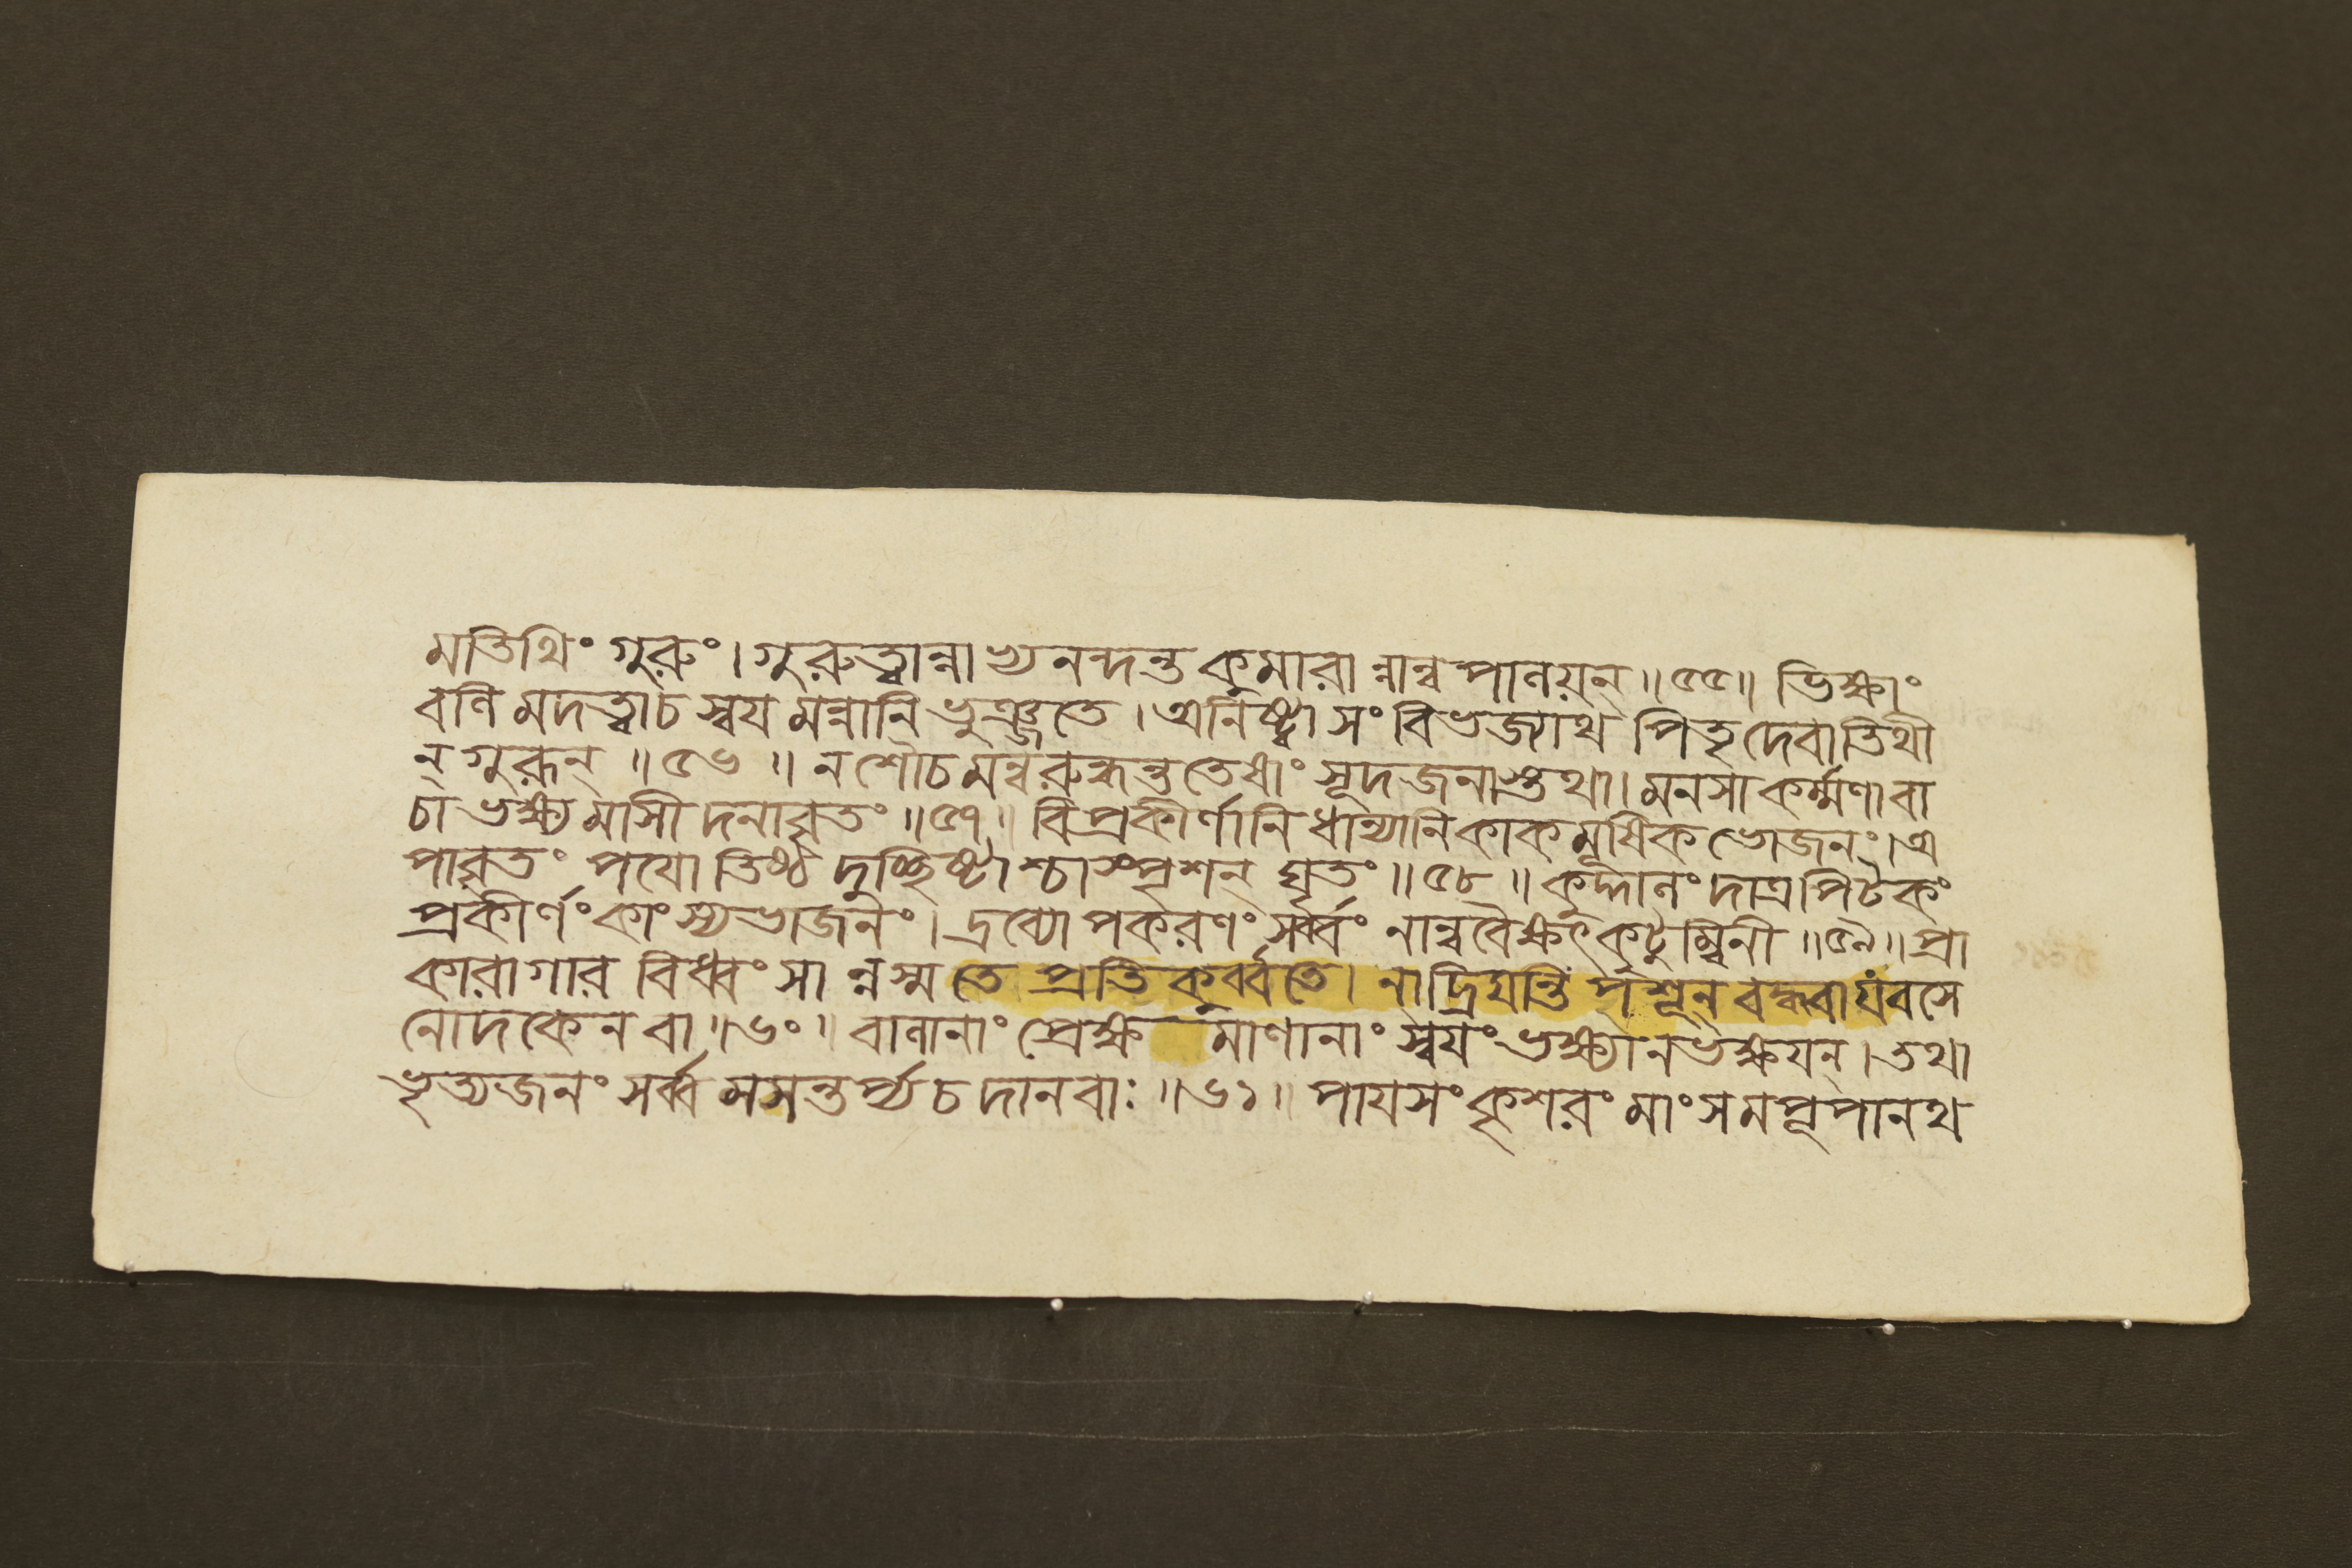 মতিথিং গুরুং। গুরুত্বান্নাভ্যনন্দন্ত কুমারান্নান্বপানয়ন্ ॥ ৫৫॥ ভিক্ষাং
বণিমদত্বাচ স্বয়মন্নানি ভুঞ্জতে। অনিষ্ট্বা সংবিভজ্যাথ পিতৃদেবাতিথী
ন্ গুরূন্ ॥ ৫৬ ॥ ন শৌচমন্বরুহ্যন্ত তেষাং সূদজনাস্তথা। মনসা কর্ম্মণা বা
চা ভক্ষ্যমাসীদনাবৃতং ॥৫৭॥ বিপ্রকীর্ণানি ধান্যানি কাকমূষিকভোজনং। অ
পাবৃতং পয়োতিষ্ঠদুচ্ছিষ্টাশ্চাস্পৃশন্ ঘৃতং ॥ ৫৮ ॥ কুদ্দানং দাত্রপিটকং
প্রকীর্ণং কাংস্যভাজনং। দ্রব্যোপকরণং সর্ব্বং নান্ববৈক্ষৎ কুটুম্বিনী ॥৫৯॥ প্রা
কারাগারবিধ্বংসান্নস্ম তে প্রতিকুর্ব্বতে। নাদ্রিয়ন্তি পশূন্ বদ্ধবা যবসে
নোদকেন বা ॥৬০॥ বালানাং প্রেক্ষ মাণানাং স্বয়ং ভক্ষ্যানভক্ষয়ন্। তথা
ভৃত্যজনং সর্ব্বমসন্তর্প্য চ দানবাঃ ॥৬১॥ পায়সং কৃশরং মাংসমপূপানথ